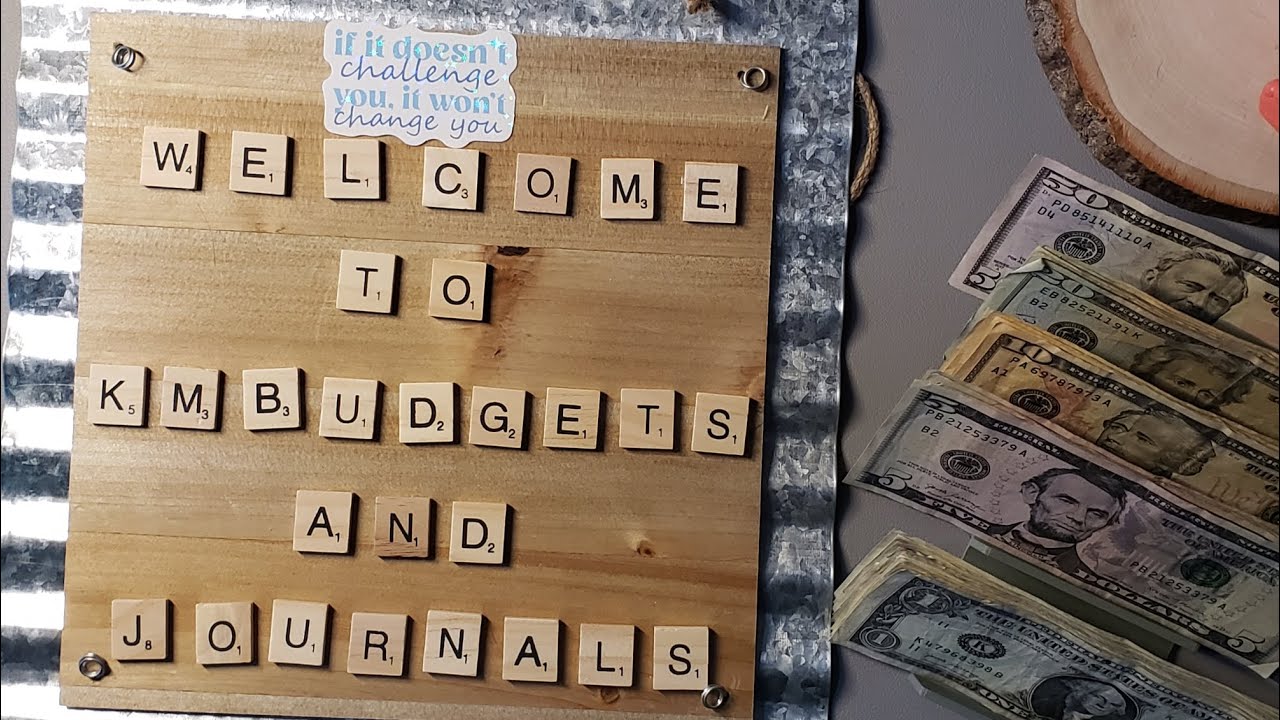 if it doesn't
challenge
you, it won't
change you
W4 E1 L1 C3 O1 M3 E1
T1 O1
K5 M3 B3 U1 D2 G2 E1 T1 S1
A1 N1 D2
J8 O1 U1 R1 N1 A1 L1 S1
50
PD 85141110 A
D4
20
EB 82521191 K
B2
10
PA 69787973 A
A1
5
PB 21253379 A
B2
5
FIVE
DOLLARS
PB 21253379 A
1
ONE